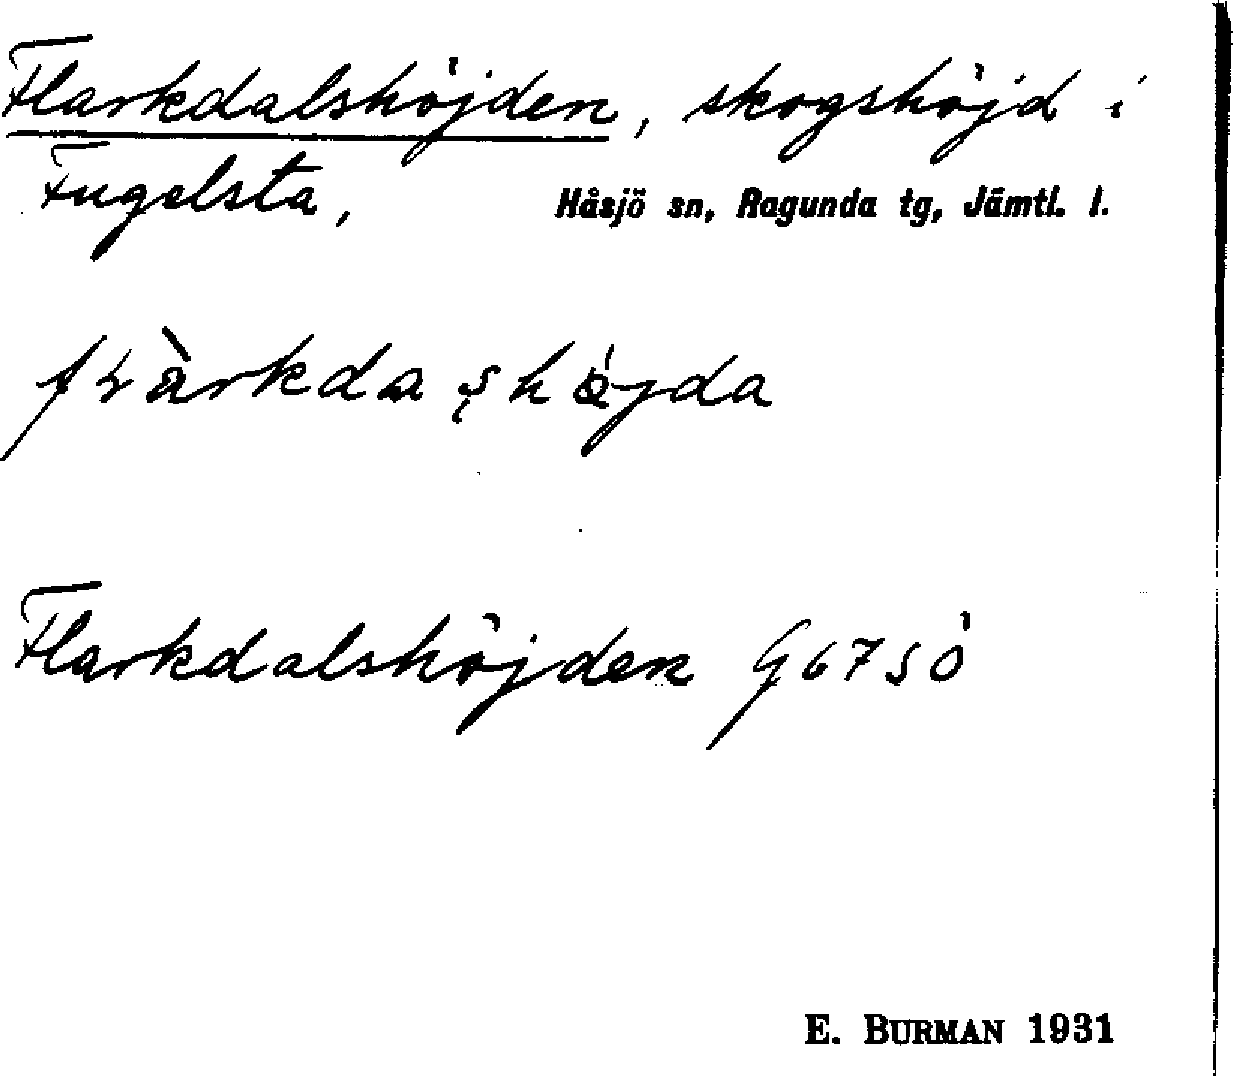 Flarkdalshöjden, skogshöjd i
Fugelsta, Håsjö sn, Ragunda tg, Jämtl. l.
Flarkdalshöjden G 67 SÖ
E. BURMAN 1931